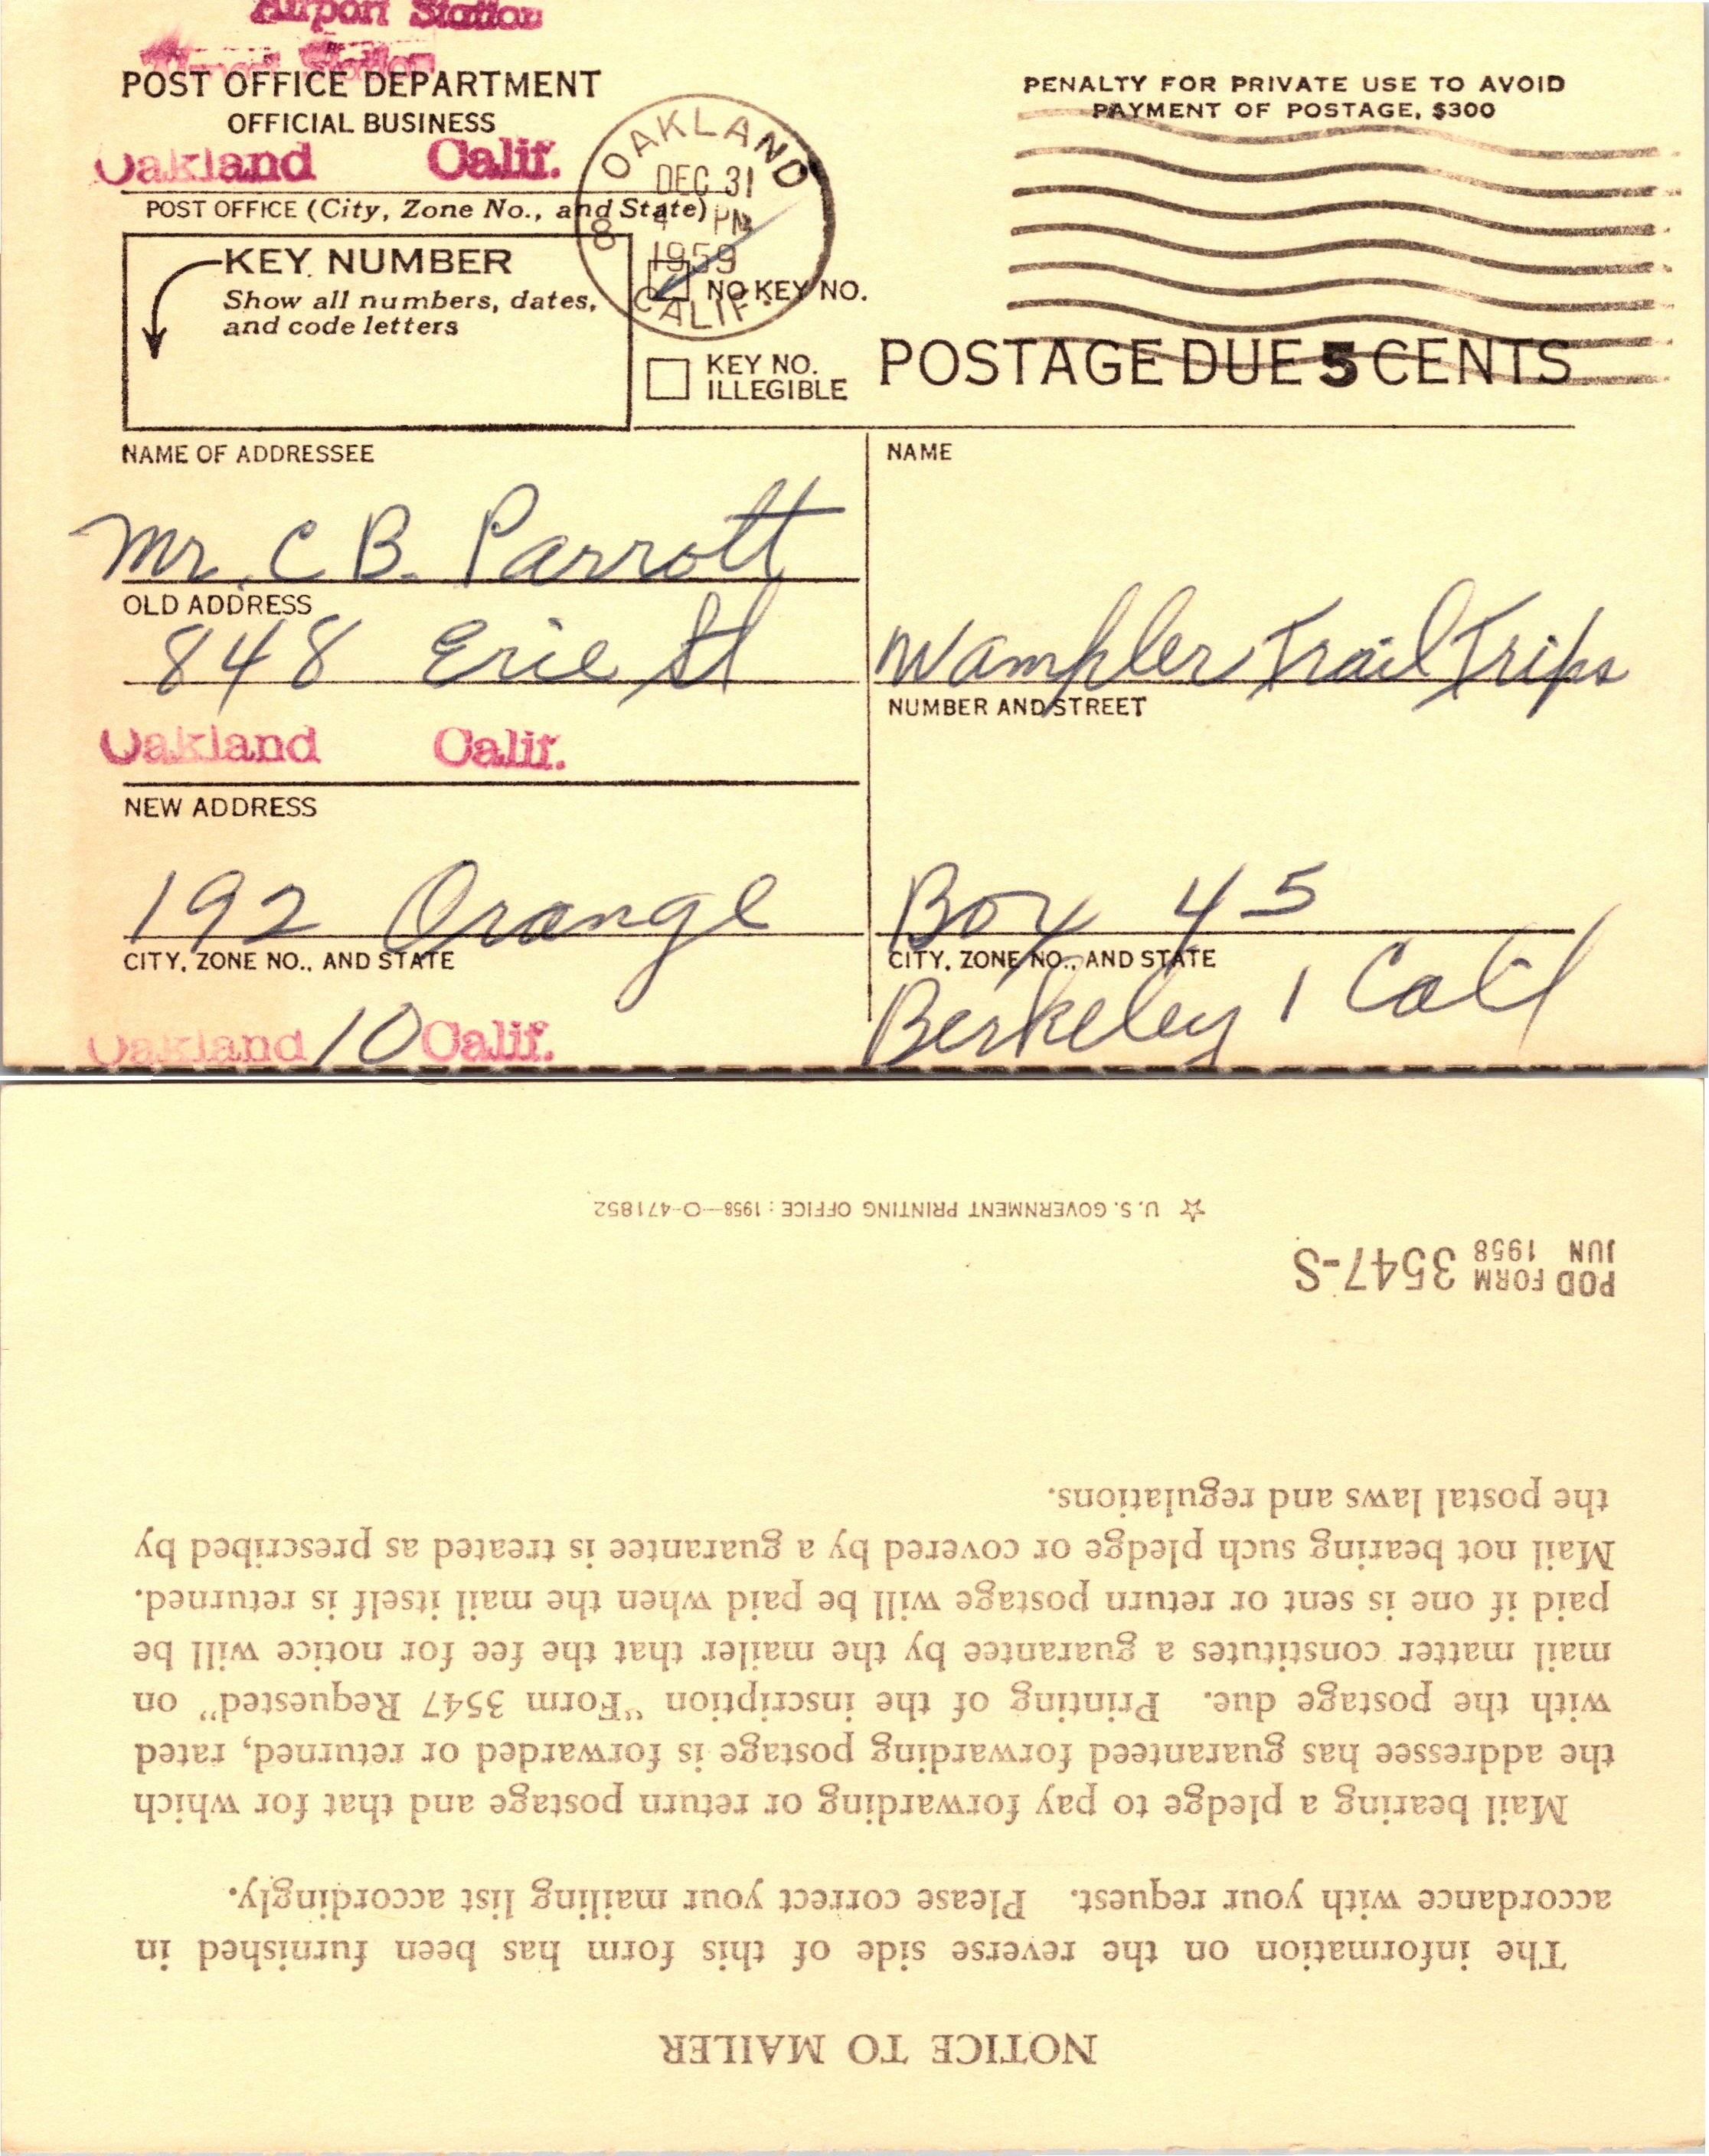 Airport Station
Airport Station
POST OFFICE DEPARTMENT
OFFICIAL BUSINESS
Oakland Calif.
POST OFFICE (City, Zone No., and State)
KEY NUMBER
Show all numbers, dates,
and code letters
OAKLAND
8
DEC 31
4 PM
1959
CALIF.
NO KEY NO.
KEY NO.
ILLEGIBLE
PENALTY FOR PRIVATE USE TO AVOID
PAYMENT OF POSTAGE, $300
POSTAGE DUE 5 CENTS
NAME OF ADDRESSEE
Mr. C B. Parrott
OLD ADDRESS
848 Erie St
Oakland Calif.
NEW ADDRESS
192 Orange
CITY, ZONE NO., AND STATE
Oakland 10 Calif.
NAME
Wampler Trail Trips
NUMBER AND STREET
Box 45
CITY, ZONE NO., AND STATE
Berkeley 1 Calif
NOTICE TO MAILER
The information on the reverse side of this form has been furnished in
accordance with your request. Please correct your mailing list accordingly.
Mail bearing a pledge to pay forwarding or return postage and that for which
the addressee has guaranteed forwarding postage is forwarded or returned, rated
with the postage due. Printing of the inscription "Form 3547 Requested" on
mail matter constitutes a guarantee by the mailer that the fee for notice will be
paid if one is sent or return postage will be paid when the mail itself is returned.
Mail not bearing such pledge or covered by a guarantee is treated as prescribed by
the postal laws and regulations.
POD FORM 3547-S
JUN 1958
☆ U.S. GOVERNMENT PRINTING OFFICE : 1958—O-471852